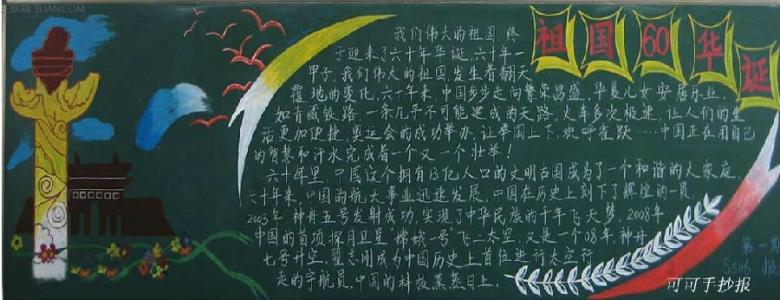 祖国60华诞
我们伟大的祖国,终
于迎来了六十年华诞,六十年一
甲子,我们伟大的祖国发生着翻天
覆地的变化,六十年来,中国步步走向繁荣昌盛,华夏儿女安居乐业,
如青藏铁路,一条几乎不可能建成的天路,火车多次提速,让人们的生
活更加便捷,奥运会的成功举办,让举国上下,欢呼雀跃……中国正在用自己
的智慧和汗水完成着一个又一个壮举!
六十年里,中国这个拥有13亿人口的文明古国成为了一个和谐的大家庭,
六十年来,中国的航天事业迅速发展,中国在历史上刻下了辉煌的一页,
2003年,神舟五号发射成功,实现了中华民族的千年飞天梦,2008年
中国的首项探月卫星“嫦娥一号”飞上太空,又是一个08年,神舟
七号升空,翟志刚成为中国历史上首位进行太空行
走的宇航员,中国的科技蒸蒸日上。
第一期
5506
可可手抄报